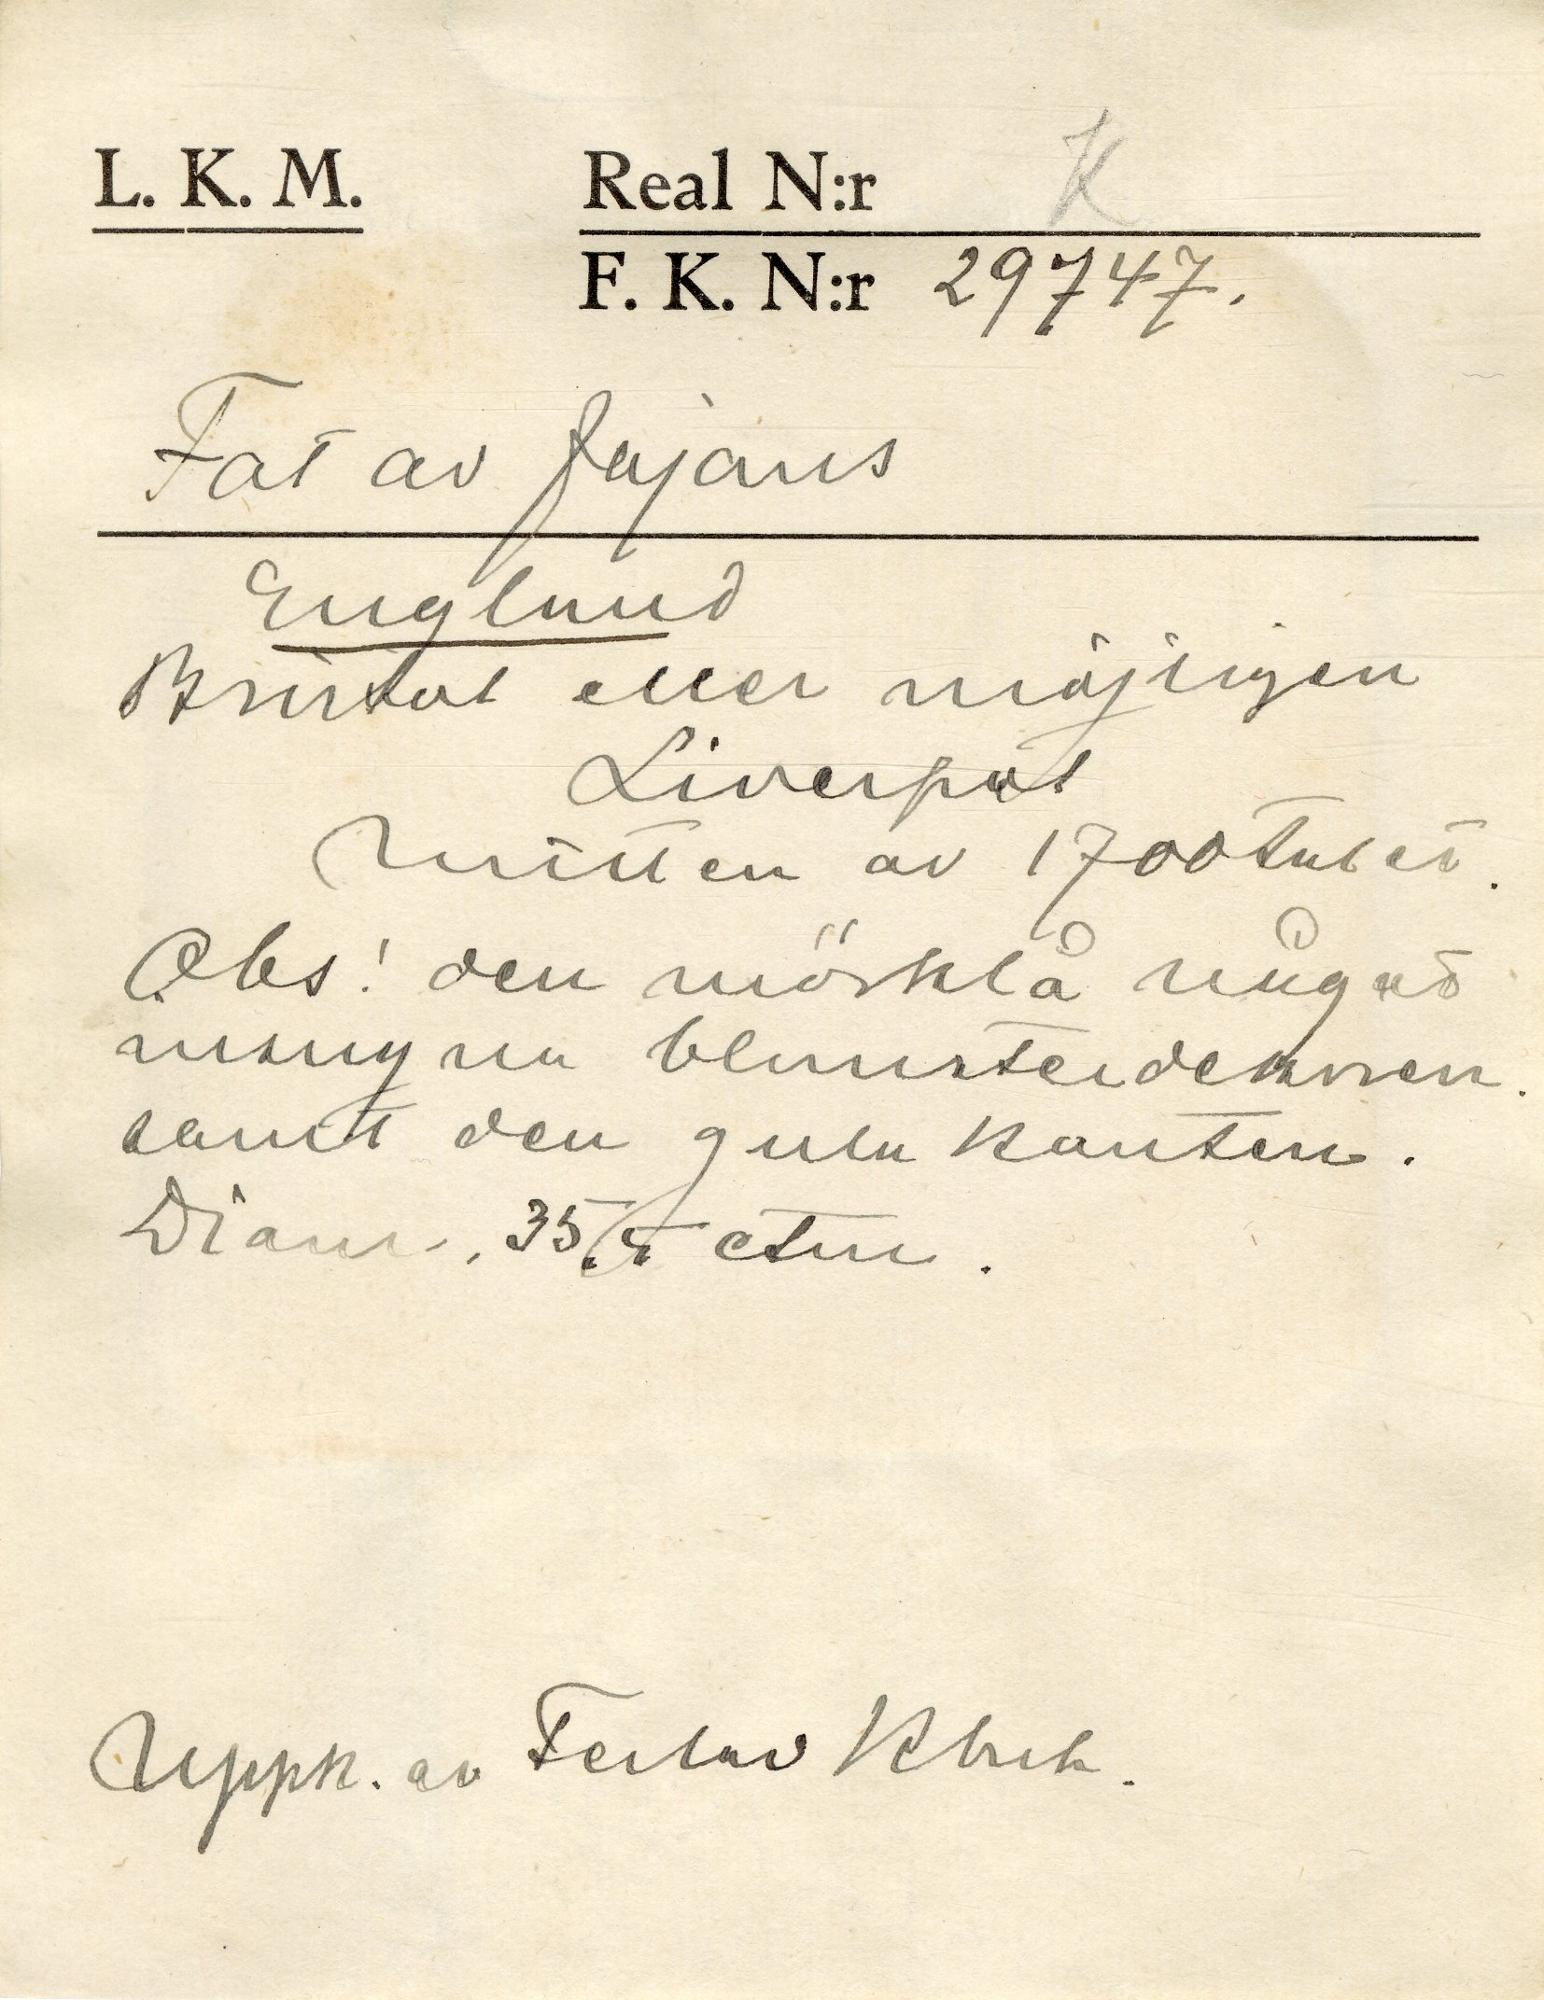 L. K. M. Real N:r K
F. K. N:r 29747.
Fat av fajans
England
Bristol eller möjligen
Liverpol
Mitten av 1700talet.
Obs! den mörkblå något
blomsterdekoren.
samt den gula kanten.
Diam. 35, ctm.
Uppk. av